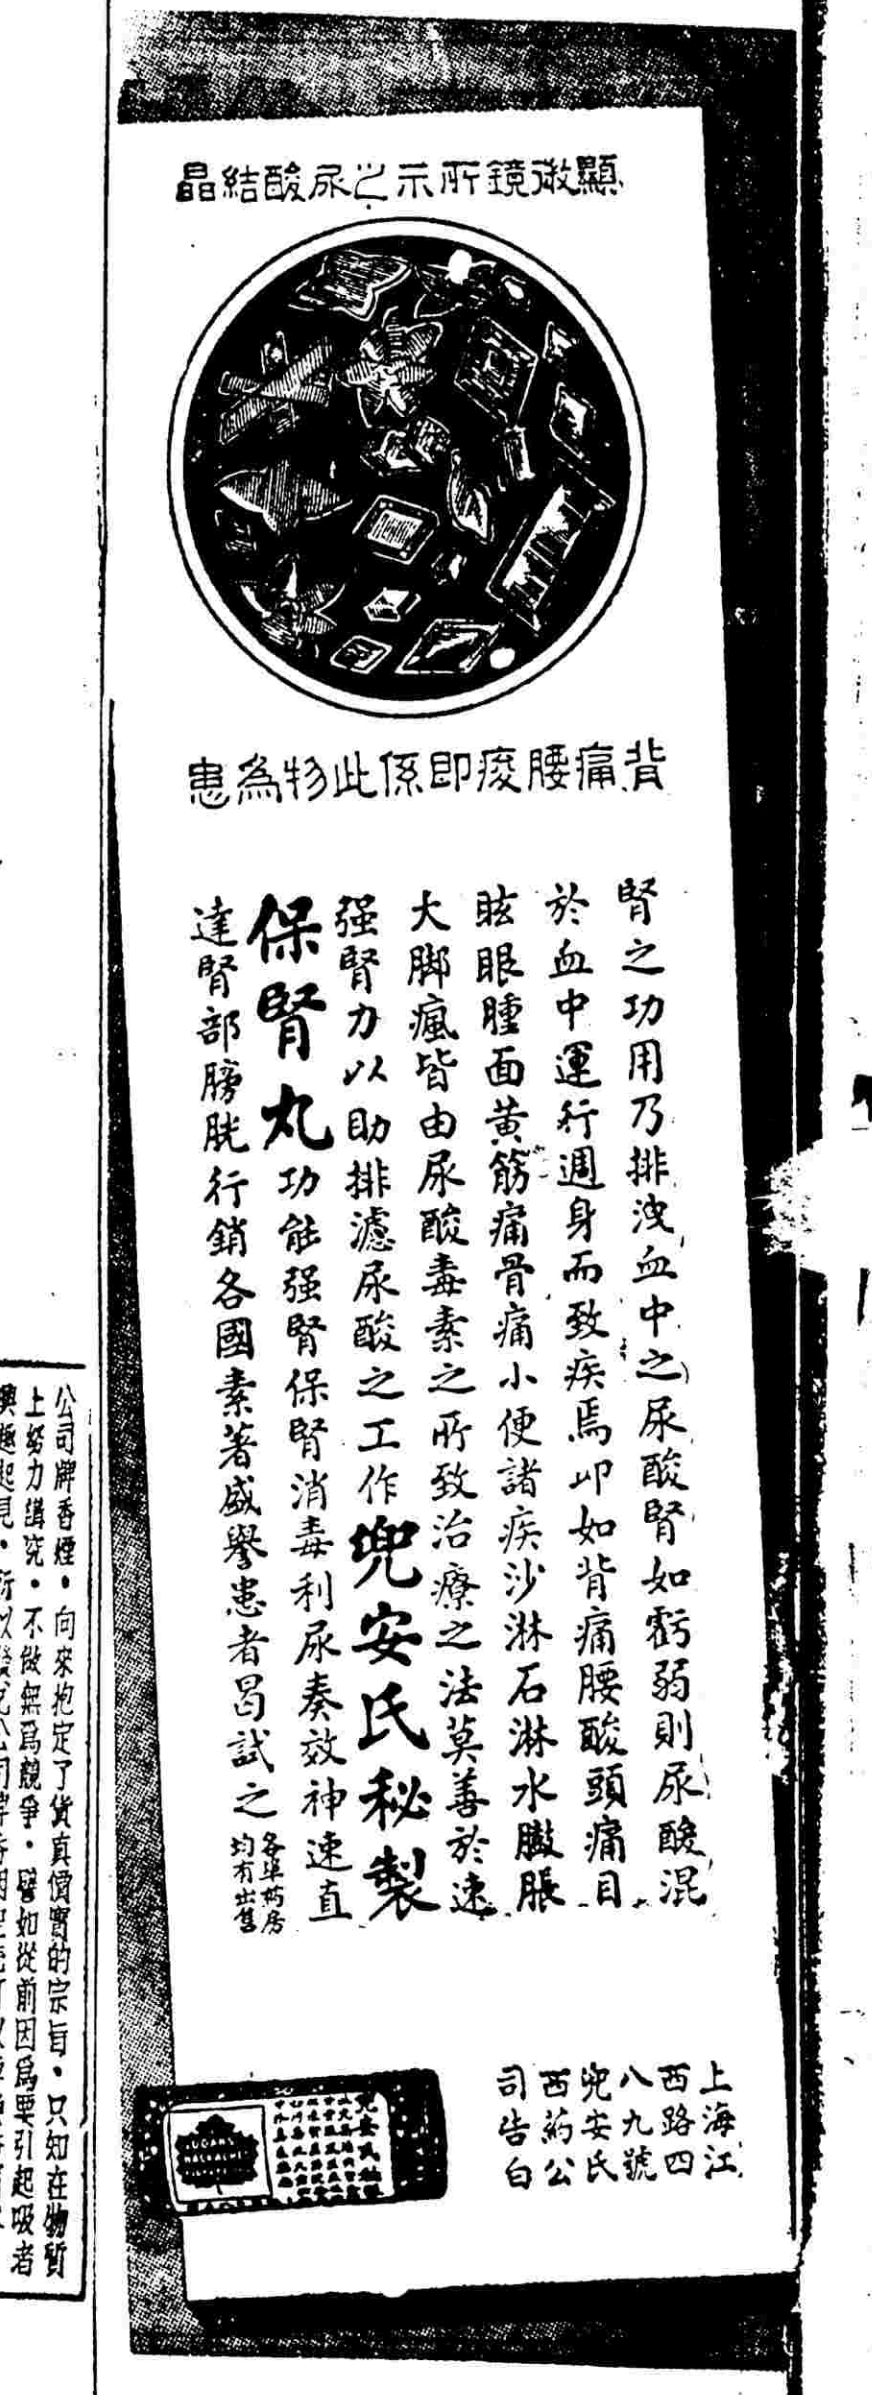 顯微鏡所示之尿酸結晶
背痛腰痠即係此物為患
腎之功用乃排洩血中之尿酸腎如虧弱則尿酸混
於血中運行週身而致疾焉卽如背痛腰酸頭痛目
眩眼腫面黃筋痛骨痛小便諸疾沙淋石淋水臌脹
大脚瘋皆由尿酸毒素之所致治療之法莫善於速
强腎力以助排濾尿酸之工作兜安氏秘製
保腎丸功能强腎保腎消毒利尿奏效神速直
達腎部膀胱行銷各國素著盛譽患者曷試之
各埠药房
均有出售
上海江
西路四
八九號
兜安氏
西葯公
司告白
公司牌香煙・向來抱定了貨真價實的宗旨・只知在物質
上努力講究・不做無爲競爭・譬如從前因爲要引起吸者